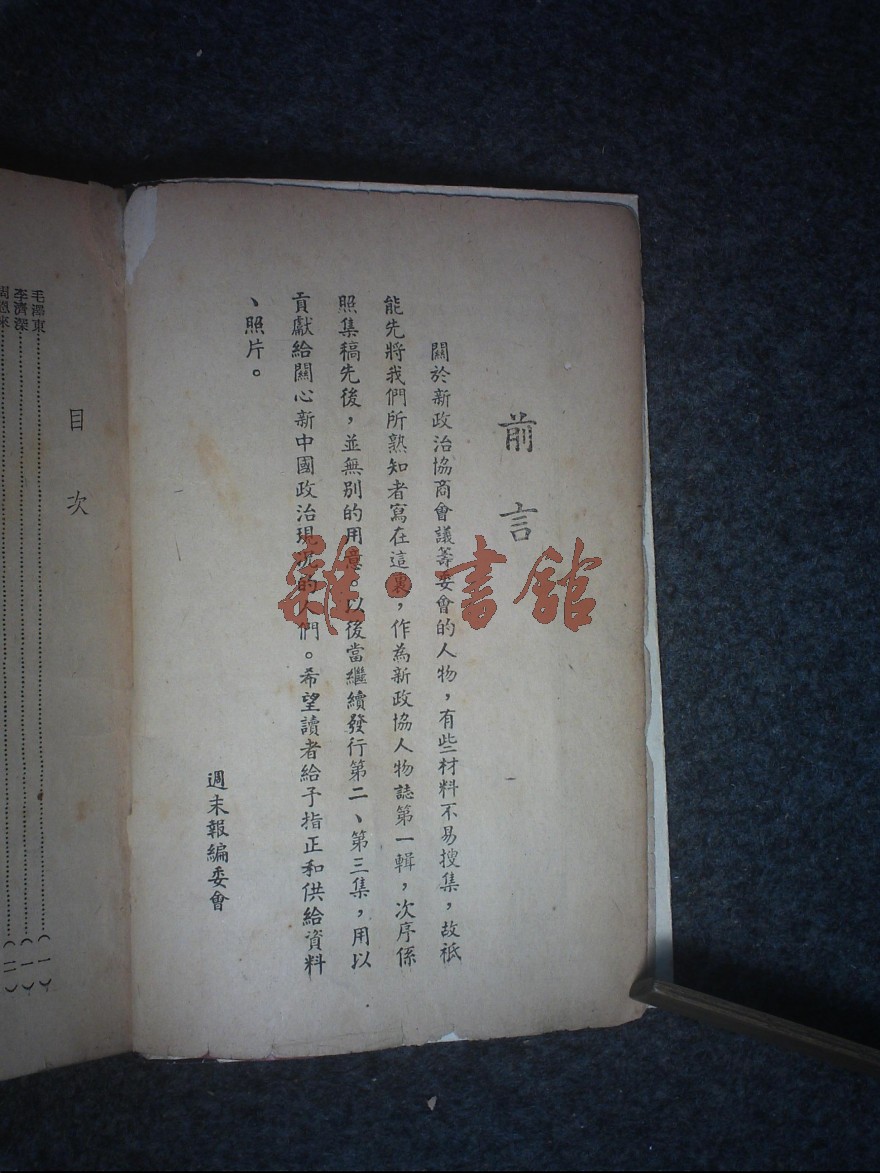 前言
關於新政治協商會議籌委會的人物，有些材料不易搜集，故祇
能先將我們所熟知者寫在這裏，作為新政協人物誌第一輯，次序係
照集稿先後，並無別的用意。以後當繼續發行第二、第三集，用以
貢獻給關心新中國政治現況的人們。希望讀者給予指正和供給資料
、照片。
週末報編委會
目次
毛澤東………(一)
李濟深………(一)
周恩來………(二)
雜·書館